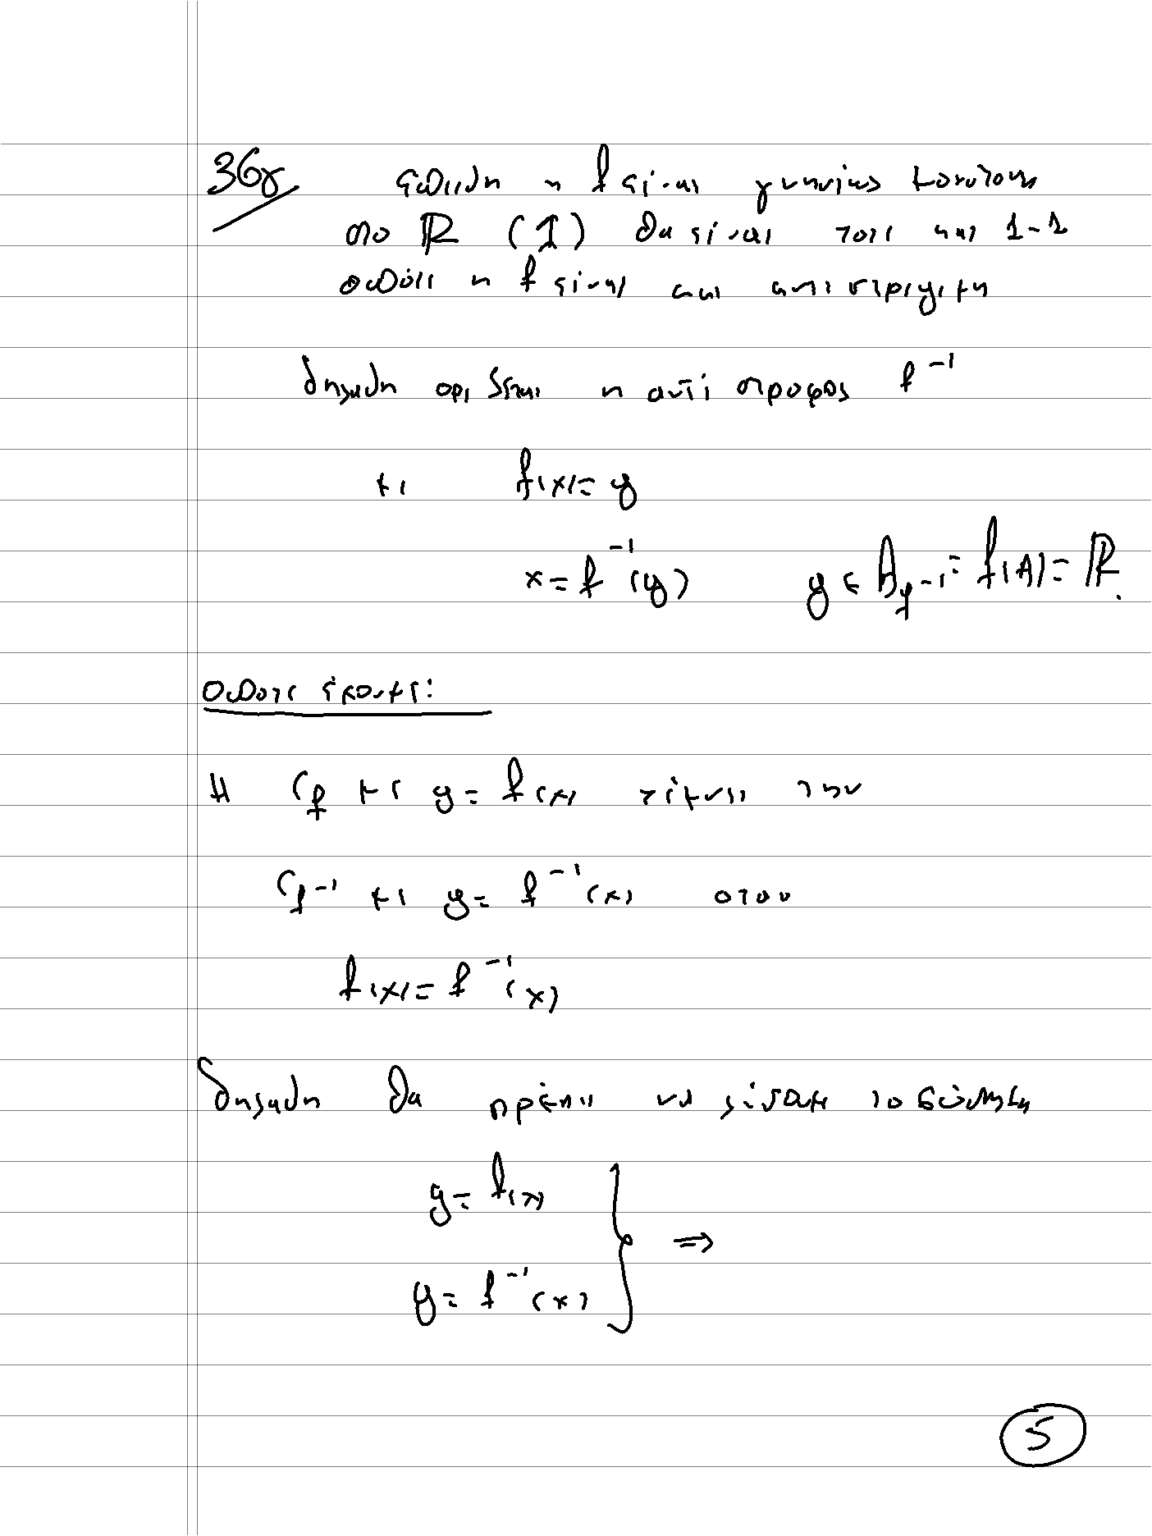 36γ επειδη η f ειναι γνησιως μονοτονη
στο ℝ (↑) θα ειναι τοτε και 1-1
οπότε η f είναι και αντιστρεψιμη
δηλαδη οριζεται η αντίστροφος f⁻¹
με f(x)=y
x=f⁻¹(y) y ∈ A_f⁻¹=f(A)=ℝ.
οποτε έχουμε:
Η C_f με y=f(x) τέμνει την
C_f⁻¹ με y=f⁻¹(x) οπου
f(x)=f⁻¹(x)
δηλαδη θα πρέπει να λύσουμε το σύστημα
y=f(x)
} ⇒
y=f⁻¹(x)
5